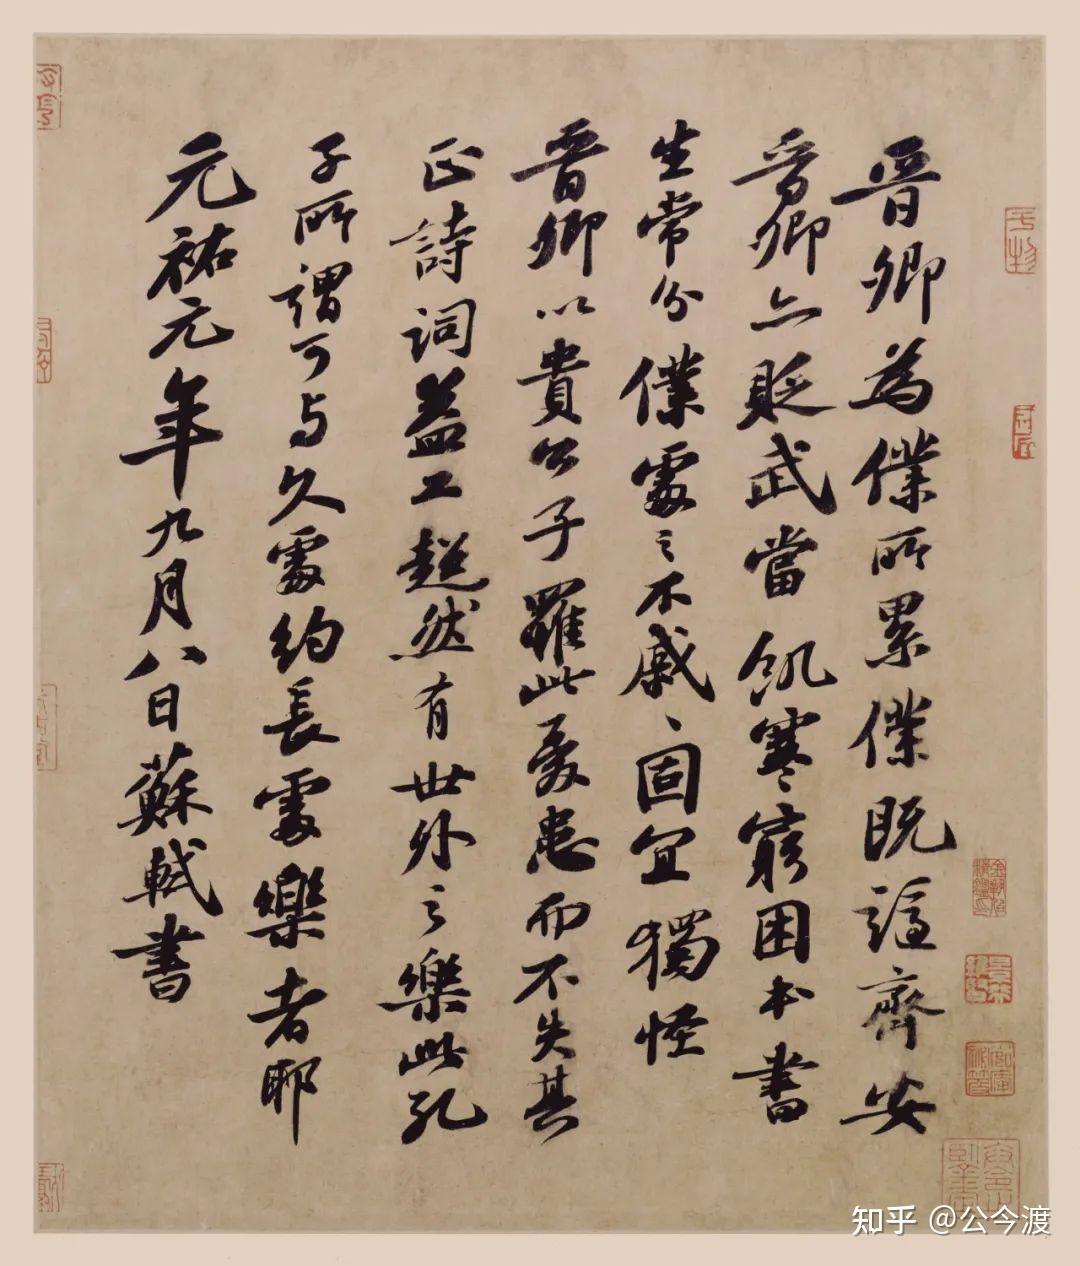 晉卿為僕所累僕既謫齊安
晉卿亦貶武當飢寒窮困本書
生常分僕處之不戚戚固宜獨怪
晉卿以貴公子罹此憂患而不失其
正詩詞益工超然有世外之樂此孔
子所謂可与久處約長處樂者耶
元祐元年九月八日蘇軾書
知乎 @公今渡